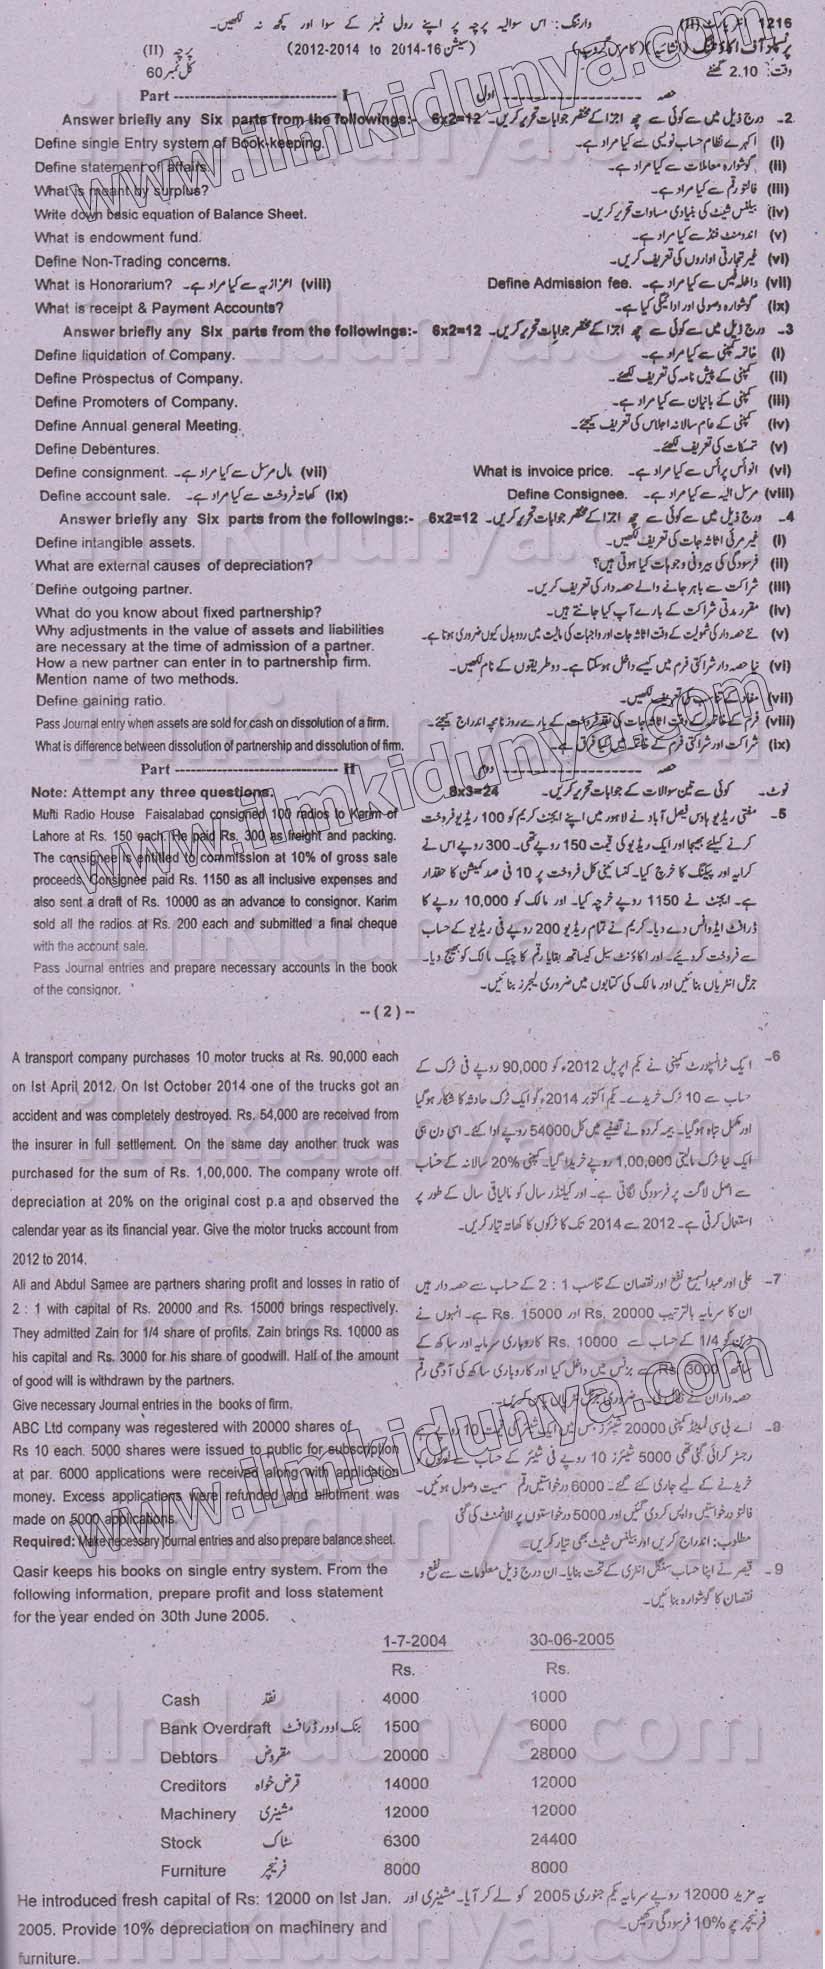 1216 انٹر پارٹ (II) وارننگ: اس سوالیہ پرچہ پر اپنے رول نمبر کے سوا اور کچھ نہ لکھیں۔
پرنسپلز آف اکاؤنٹنگ (انشائیہ) (کامرس گروپ) (سیشن 2012-2014 to 2014-16) پرچہ (II)
وقت: 2.10 گھنٹے کل نمبر 60
Part ---------- I حصہ ---------- اول
Answer briefly any Six parts from the followings:- 6x2=12 درج ذیل میں سے کوئی سے چھ اجزا کے مختصر جوابات تحریر کریں۔ -2
Define single Entry system of Book-keeping. اکہرے نظام حساب نویسی سے کیا مراد ہے۔ (i)
Define statement of affairs. گوشوارہ معاملات سے کیا مراد ہے۔ (ii)
What is meant by surplus? فالتو رقم سے کیا مراد ہے۔ (iii)
Write down basic equation of Balance Sheet. بیلنس شیٹ کی بنیادی مساوات تحریر کریں۔ (iv)
What is endowment fund. انڈومنٹ فنڈ سے کیا مراد ہے۔ (v)
Define Non-Trading concerns. غیر تجارتی اداروں کی تعریف کریں۔ (vi)
What is Honorarium? اعزازیہ سے کیا مراد ہے۔ (viii) Define Admission fee. داخلہ فیس سے کیا مراد ہے۔ (vii)
What is receipt & Payment Accounts? گوشوارہ وصولی اور ادائیگی کیا ہے۔ (ix)
Answer briefly any Six parts from the followings:- 6x2=12 درج ذیل میں سے کوئی سے چھ اجزا کے مختصر جوابات تحریر کریں۔ -3
Define liquidation of Company. خاتمہ کمپنی سے کیا مراد ہے۔ (i)
Define Prospectus of Company. کمپنی کے پیش نامہ کی تعریف لکھئے۔ (ii)
Define Promoters of Company. کمپنی کے بانیان سے کیا مراد ہے۔ (iii)
Define Annual general Meeting. کمپنی کے عام سالانہ اجلاس کی تعریف کیجئے۔ (iv)
Define Debentures. تمسکات کی تعریف لکھئے۔ (v)
Define consignment. مال مرسل سے کیا مراد ہے۔ (vii) What is invoice price. انوائس پرائس سے کیا مراد ہے۔ (vi)
Define account sale. کھاتہ فروخت سے کیا مراد ہے۔ (ix) Define Consignee. مرسل الیہ سے کیا مراد ہے۔ (viii)
Answer briefly any Six parts from the followings:- 6x2=12 درج ذیل میں سے کوئی سے چھ اجزا کے مختصر جوابات تحریر کریں۔ -4
Define intangible assets. غیر مرئی اثاثہ جات کی تعریف لکھیں۔ (i)
What are external causes of depreciation? فرسودگی کی بیرونی وجوہات کیا ہوتی ہیں؟ (ii)
Define outgoing partner. شراکت سے باہر جانے والے حصہ دار کی تعریف کریں۔ (iii)
What do you know about fixed partnership? مقررہ مدتی شراکت کے بارے آپ کیا جانتے ہیں۔ (iv)
Why adjustments in the value of assets and liabilities
are necessary at the time of admission of a partner. نئے حصہ دار کی شمولیت کے وقت اثاثہ جات اور واجبات کی مالیت میں ردوبدل کیوں ضروری ہوتا ہے۔ (v)
How a new partner can enter in to partnership firm.
Mention name of two methods. نیا حصہ دار شراکتی فرم میں کیسے داخل ہو سکتا ہے۔ دو طریقوں کے نام لکھیں۔ (vi)
Define gaining ratio. مفاد کے تناسب کی تعریف لکھیں۔ (vii)
Pass Journal entry when assets are sold for cash on dissolution of a firm. فرم کے خاتمہ کے وقت اثاثہ جات کی نقد فروخت کے بارے روزنامچہ اندراج کیجئے۔ (viii)
What is difference between dissolution of partnership and dissolution of firm. شراکت اور شراکتی فرم کے خاتمہ میں کیا فرق ہے۔ (ix)
Part ---------- II حصہ ---------- دوم
Note: Attempt any three questions. 8x3=24 کوئی سے تین سوالات کے جوابات تحریر کریں۔ نوٹ۔
Mufti Radio House Faisalabad consigned 100 radios to Karim of
Lahore at Rs. 150 each. He paid Rs. 300 as freight and packing.
The consignee is entitled to commission at 10% of gross sale
proceeds. Consignee paid Rs. 1150 as all inclusive expenses and
also sent a draft of Rs. 10000 as an advance to consignor. Karim
sold all the radios at Rs. 200 each and submitted a final cheque
with the account sale.
Pass Journal entries and prepare necessary accounts in the book
of the consignor.
-5 مفتی ریڈیو ہاؤس فیصل آباد نے لاہور میں اپنے ایجنٹ کریم کو 100 ریڈیو فروخت
کرنے کیلئے بھیجا اور ایک ریڈیو کی قیمت 150 روپے تھی۔ 300 روپے اس نے
کرایہ اور پیکنگ کا خرچ کیا۔ کنسائینی کل فروخت پر 10 فی صد کمیشن کا حقدار
ہے۔ ایجنٹ نے 1150 روپے خرچہ کیا۔ اور مالک کو 10,000 روپے کا
ڈرافٹ ایڈوانس دے دیا۔ کریم نے تمام ریڈیو 200 روپے فی ریڈیو کے حساب
سے فروخت کر دیئے۔ اور اکاؤنٹ سیل کیساتھ بقایا رقم کا چیک مالک کو بھیج دیا۔
جرنل انٹریاں بنائیں اور مالک کی کتابوں میں ضروری لیجرز بنائیں۔
--(2)--
A transport company purchases 10 motor trucks at Rs. 90,000 each
on Ist April 2012. On Ist October 2014 one of the trucks got an
accident and was completely destroyed. Rs. 54,000 are received from
the insurer in full settlement. On the same day another truck was
purchased for the sum of Rs. 1,00,000. The company wrote off
depreciation at 20% on the original cost p.a and observed the
calendar year as its financial year. Give the motor trucks account from
2012 to 2014.
-6 ایک ٹرانسپورٹ کمپنی نے یکم اپریل 2012ء کو 90,000 روپے فی ٹرک کے
حساب سے 10 ٹرک خریدے۔ یکم اکتوبر 2014ء کو ایک ٹرک حادثہ کا شکار ہو گیا
اور مکمل تباہ ہو گیا۔ بیمہ کردہ نے تصفیے میں کل 54000 روپے ادا کئے۔ اسی دن ہی
ایک نیا ٹرک مالیتی 1,00,000 روپے خریدا گیا۔ کمپنی 20% سالانہ کے حساب
سے اصل لاگت پر فرسودگی لگاتی ہے۔ اور کیلنڈر سال کو مالیاتی سال کے طور پر
استعمال کرتی ہے۔ 2012 سے 2014 تک کا ٹرکوں کا کھاتہ تیار کریں۔
Ali and Abdul Samee are partners sharing profit and losses in ratio of
2 : 1 with capital of Rs. 20000 and Rs. 15000 brings respectively.
They admitted Zain for 1/4 share of profits. Zain brings Rs. 10000 as
his capital and Rs. 3000 for his share of goodwill. Half of the amount
of good will is withdrawn by the partners.
Give necessary Journal entries in the books of firm.
-7 علی اور عبدالسمیع نفع اور نقصان کے تناسب 1 : 2 کے حساب سے حصہ دار ہیں
ان کا سرمایہ بالترتیب Rs. 20000 اور Rs. 15000 ہے۔ انہوں نے
زین کو 1/4 کے حساب سے Rs. 10000 کاروباری سرمایہ اور ساکھ کے
ساتھ Rs. 3000 سے بزنس میں داخل کیا اور کاروباری ساکھ کی آدھی رقم
حصہ داران نے نکال لی۔ ضروری جرنل انٹریاں پاس کریں۔
ABC Ltd company was regestered with 20000 shares of
Rs 10 each. 5000 shares were issued to public for subscription
at par. 6000 applications were received along with application
money. Excess applications were refunded and allotment was
made on 5000 applications.
Required: Make necessary journal entries and also prepare balance sheet.
-8 اے بی سی لمیٹڈ کمپنی 20000 شیئرز جس میں ایک شیئر کی قیمت 10 روپے ہے
رجسٹر کرائی گئی تھی 5000 شیئرز 10 روپے فی شیئر کے حساب سے لوگوں کو
خریدنے کے لیے جاری کئے گئے۔ 6000 درخواستیں رقم سمیت وصول ہوئیں۔
فالتو درخواستیں واپس کر دی گئیں اور 5000 درخواستوں پر الاٹمنٹ کی گئی
مطلوب: اندراج کریں اور بیلنس شیٹ بھی تیار کریں۔
Qasir keeps his books on single entry system. From the
following information, prepare profit and loss statement
for the year ended on 30th June 2005.
-9 قیصر نے اپنا حساب سنگل انٹری کے تحت بنایا۔ ان درج ذیل معلومات سے نفع و
نقصان کا گوشوارہ بنائیں۔
1-7-2004 30-06-2005
Rs. Rs.
Cash نقد 4000 1000
Bank Overdraft بنک اوور ڈرافٹ 1500 6000
Debtors مقروض 20000 28000
Creditors قرض خواہ 14000 12000
Machinery مشینری 12000 12000
Stock سٹاک 6300 24400
Furniture فرنیچر 8000 8000
He introduced fresh capital of Rs: 12000 on Ist Jan.
2005. Provide 10% depreciation on machinery and
furniture.
یہ مزید 12000 روپے سرمایہ یکم جنوری 2005 کو لے کر آیا۔ مشینری اور
فرنیچر پر 10% فرسودگی رکھیں۔
www.ilmkidunya.com
ilmkidunya.com